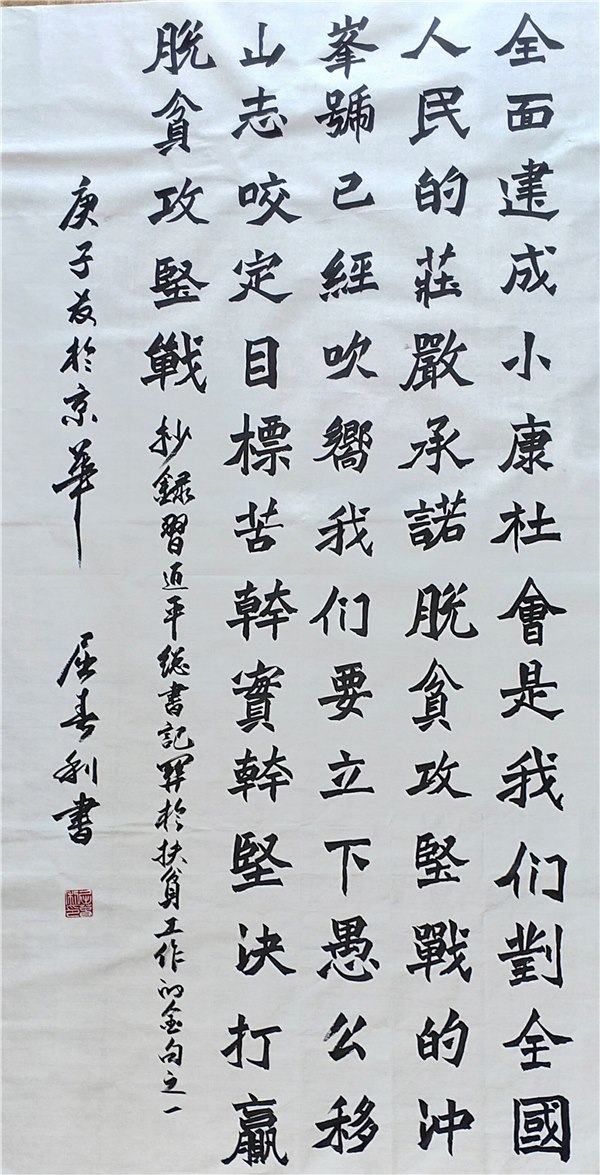 全面建成小康社會是我们對全國
人民的莊嚴承諾脱貧攻堅戰的沖
峯號已經吹嚮我们要立下愚公移
山志咬定目標苦幹實幹堅決打贏
脱貧攻堅戰
抄録習近平総書記関於扶貧工作的金句之一
庚子友於京華
屈春利書